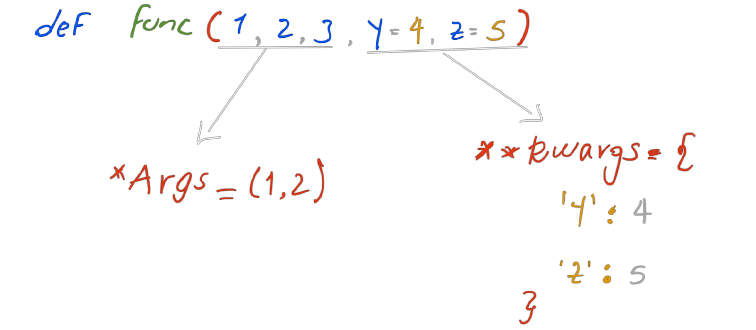 def func (1, 2, 3, y=4, z=5)
*Args = (1,2)
**kwargs = {
'y' : 4
'z' : 5
}